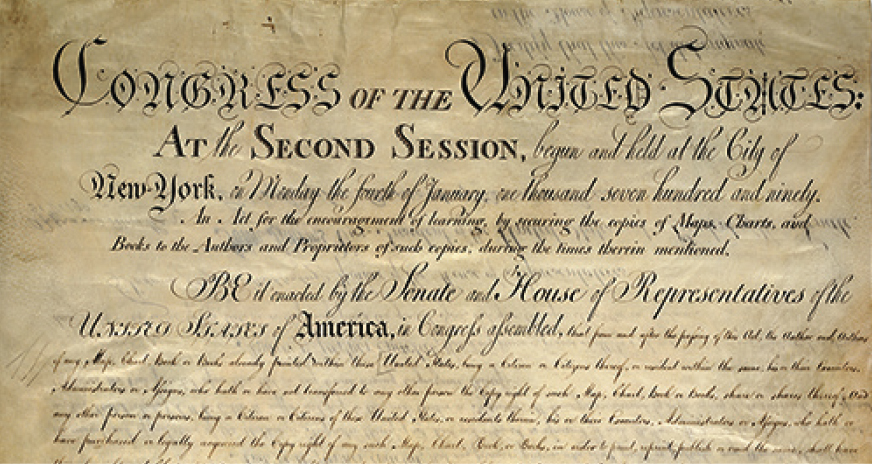 CONGRESS OF THE UNITED STATES:
AT the SECOND SESSION, begun and held at the City of
New-York, on Monday the fourth of January, one thousand seven hundred and ninety.
An Act for the encouragement of learning, by securing the copies of Maps, Charts, and
Books to the Authors and Proprietors of such copies, during the times therein mentioned.
BE it enacted by the Senate and House of Representatives of the
UNITED STATES of America, in Congress assembled, that from and after the passing of this Act, the Author and Authors
of any Map, Chart, Book or Books already printed within these United States, being a Citizen or Citizens thereof, or resident within the same, his or their Executors,
Administrators or Assigns, who hath or have not transferred to any other person the Copy right of such Map, Chart, Book or Books, share or shares thereof, And
any other person or persons, being a Citizen or Citizens of these United States, or residents therein, his or their Executors, Administrators or Assigns, who hath or
have purchased or legally acquired the Copy right of any such Map, Chart, Book, or Books, in order to print, reprint, publish or vend the same, shall have